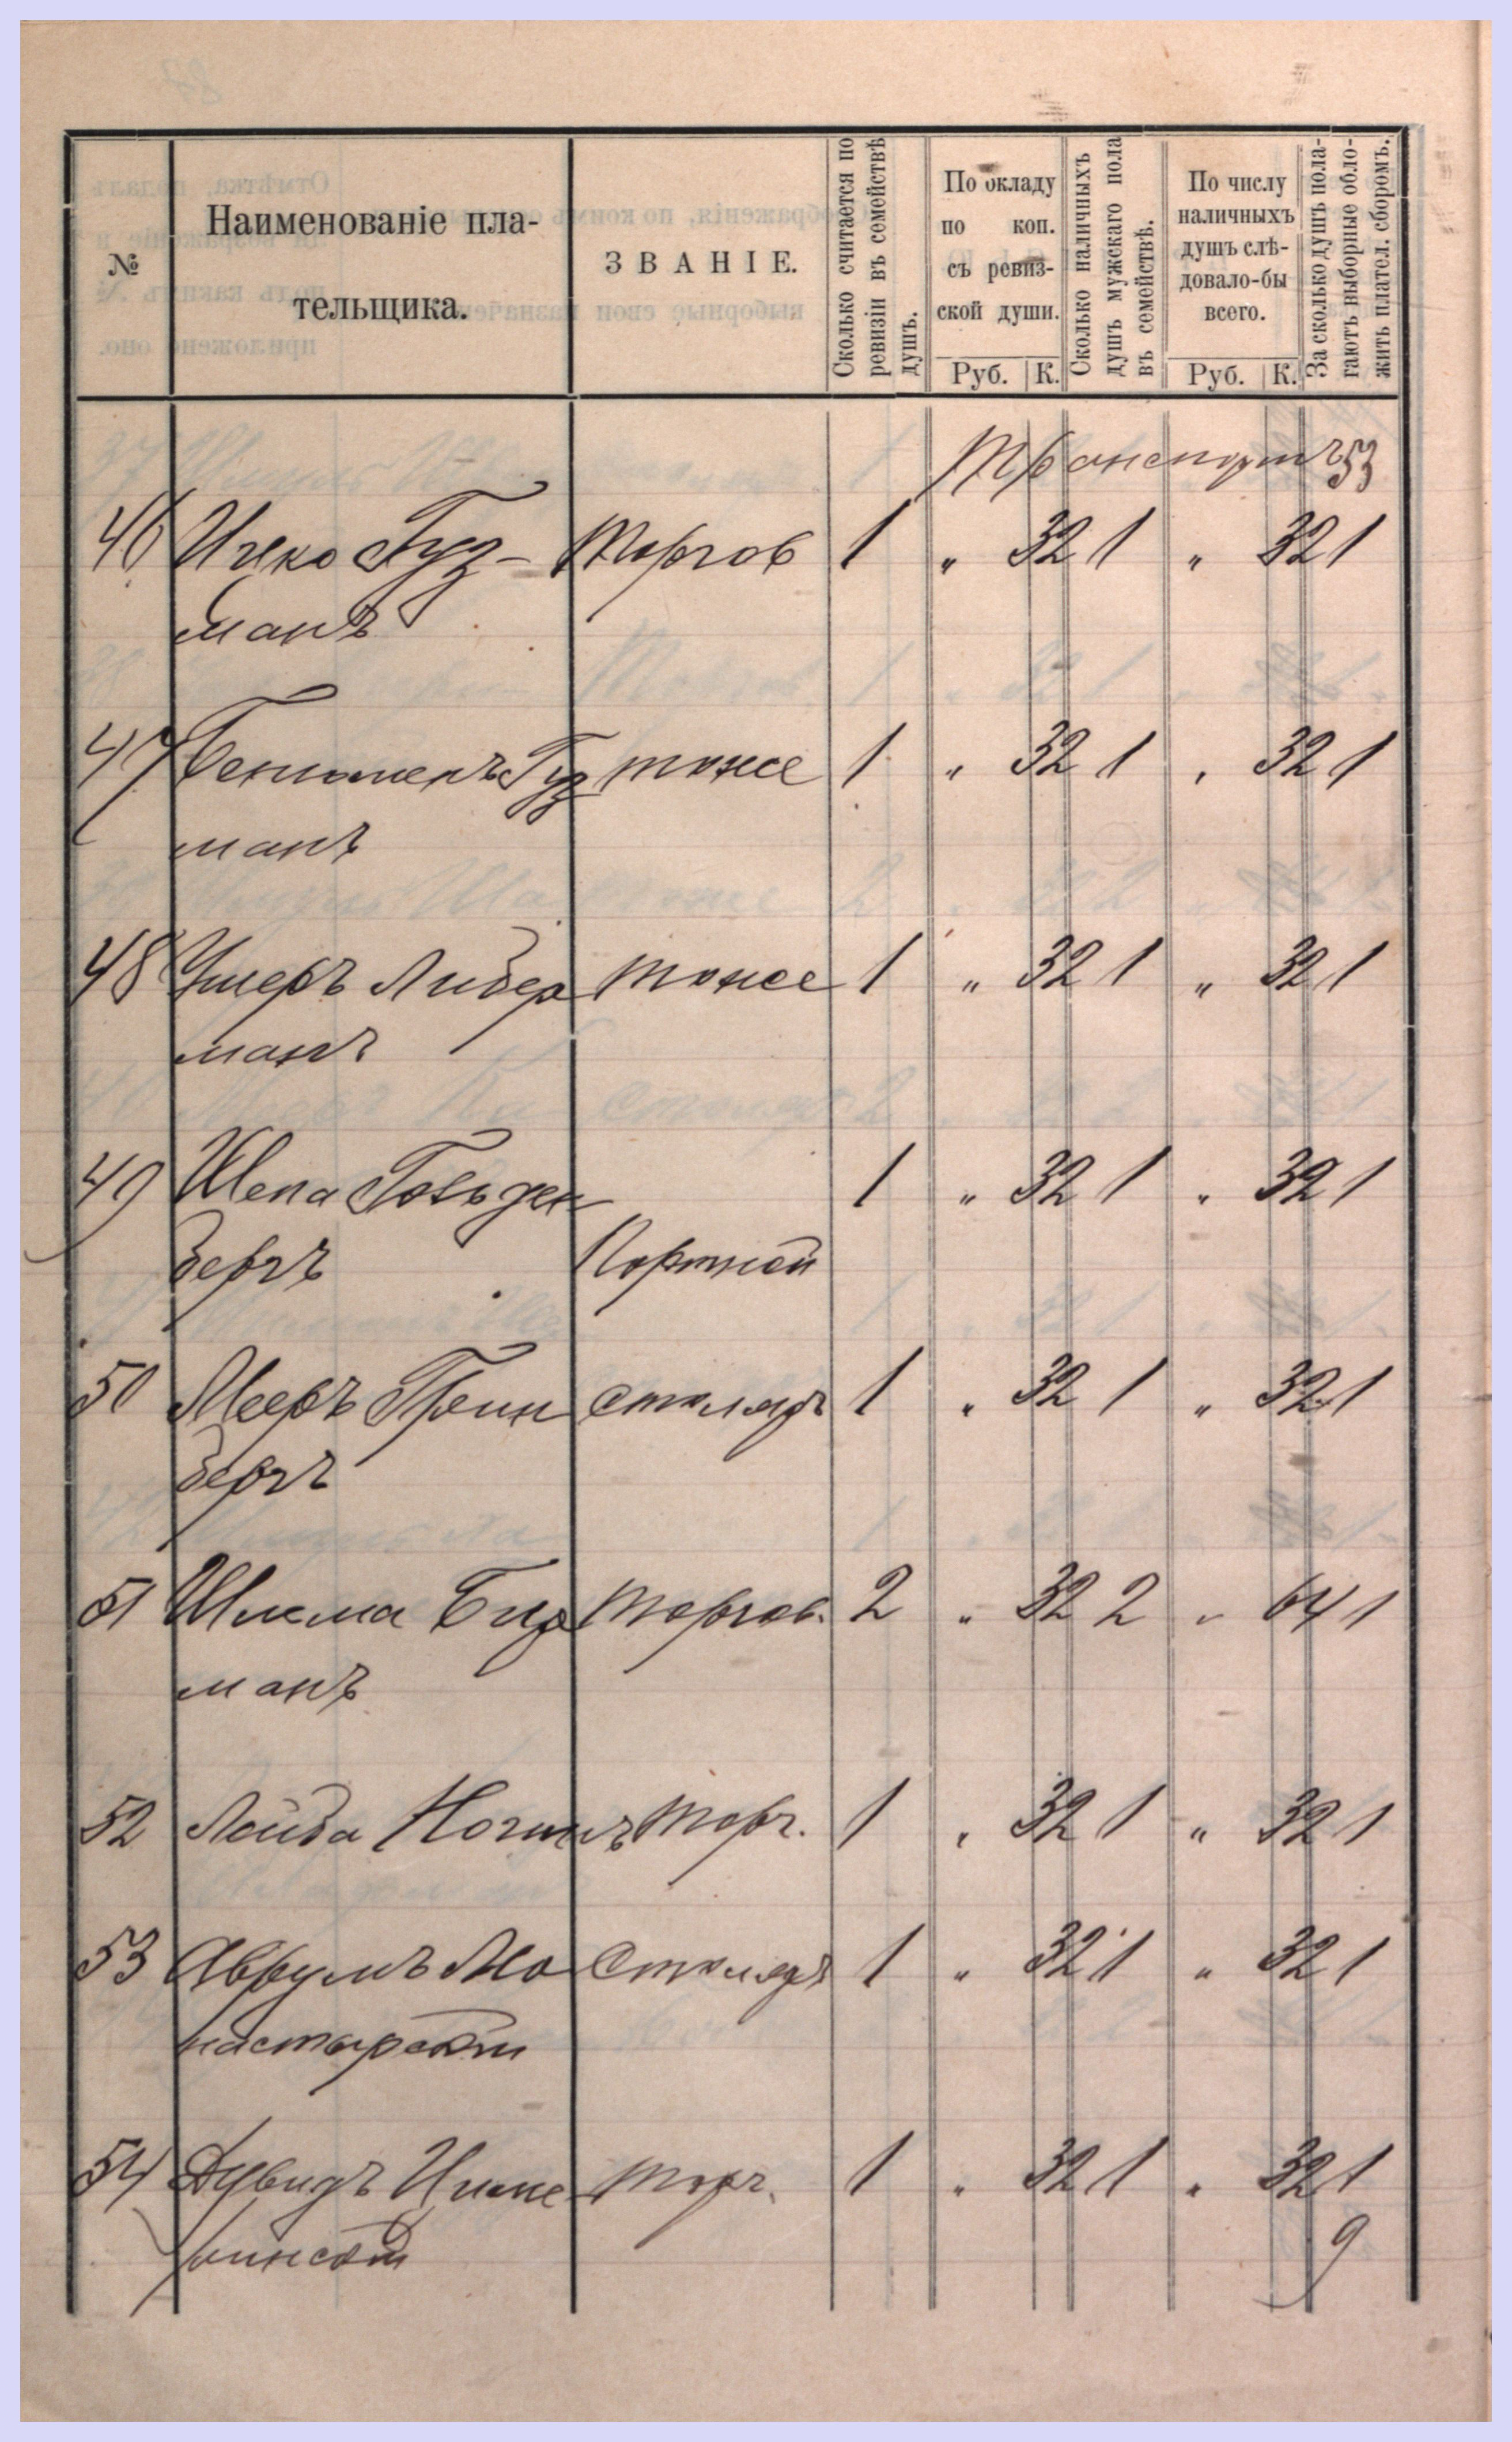 №
Наименованіе пла-
тельщика.
ЗВАНІЕ.
Сколько считается по
ревизіи въ семействѣ
душъ.
По окладу
по коп.
съ ревиз-
ской души.
Руб. К.
Сколько наличныхъ
душъ мужскаго пола
въ семействѣ.
По числу
наличныхъ
душъ слѣ-
довало-бы
всего.
Руб. К.
За сколько душъ пола-
гаютъ выборные обло-
жить плател. сборомъ.
Транспортъ 53
46 Ицко Гуз- Торгов 1 „ 32 1 „ 32 1
манъ
47 Беньоменъ Гуз тоже 1 „ 32 1 „ 32 1
манъ
48 Ушеръ Либер тоже 1 „ 32 1 „ 32 1
манъ
49 Шепа Гольден 1 „ 32 1 „ 32 1
бергъ Портной
50 Мееръ Грин столяръ 1 „ 32 1 „ 32 1
бергъ
51 Шлема Гиз торгов. 2 „ 32 2 „ 64 1
манъ
52 Лейба торг. 1 „ 32 1 „ 32 1
53 Аврумъ Мо столяръ 1 „ 32 1 „ 32 1
настырскій
54 Дувидъ торг. 1 „ 32 1 „ 32 1
9